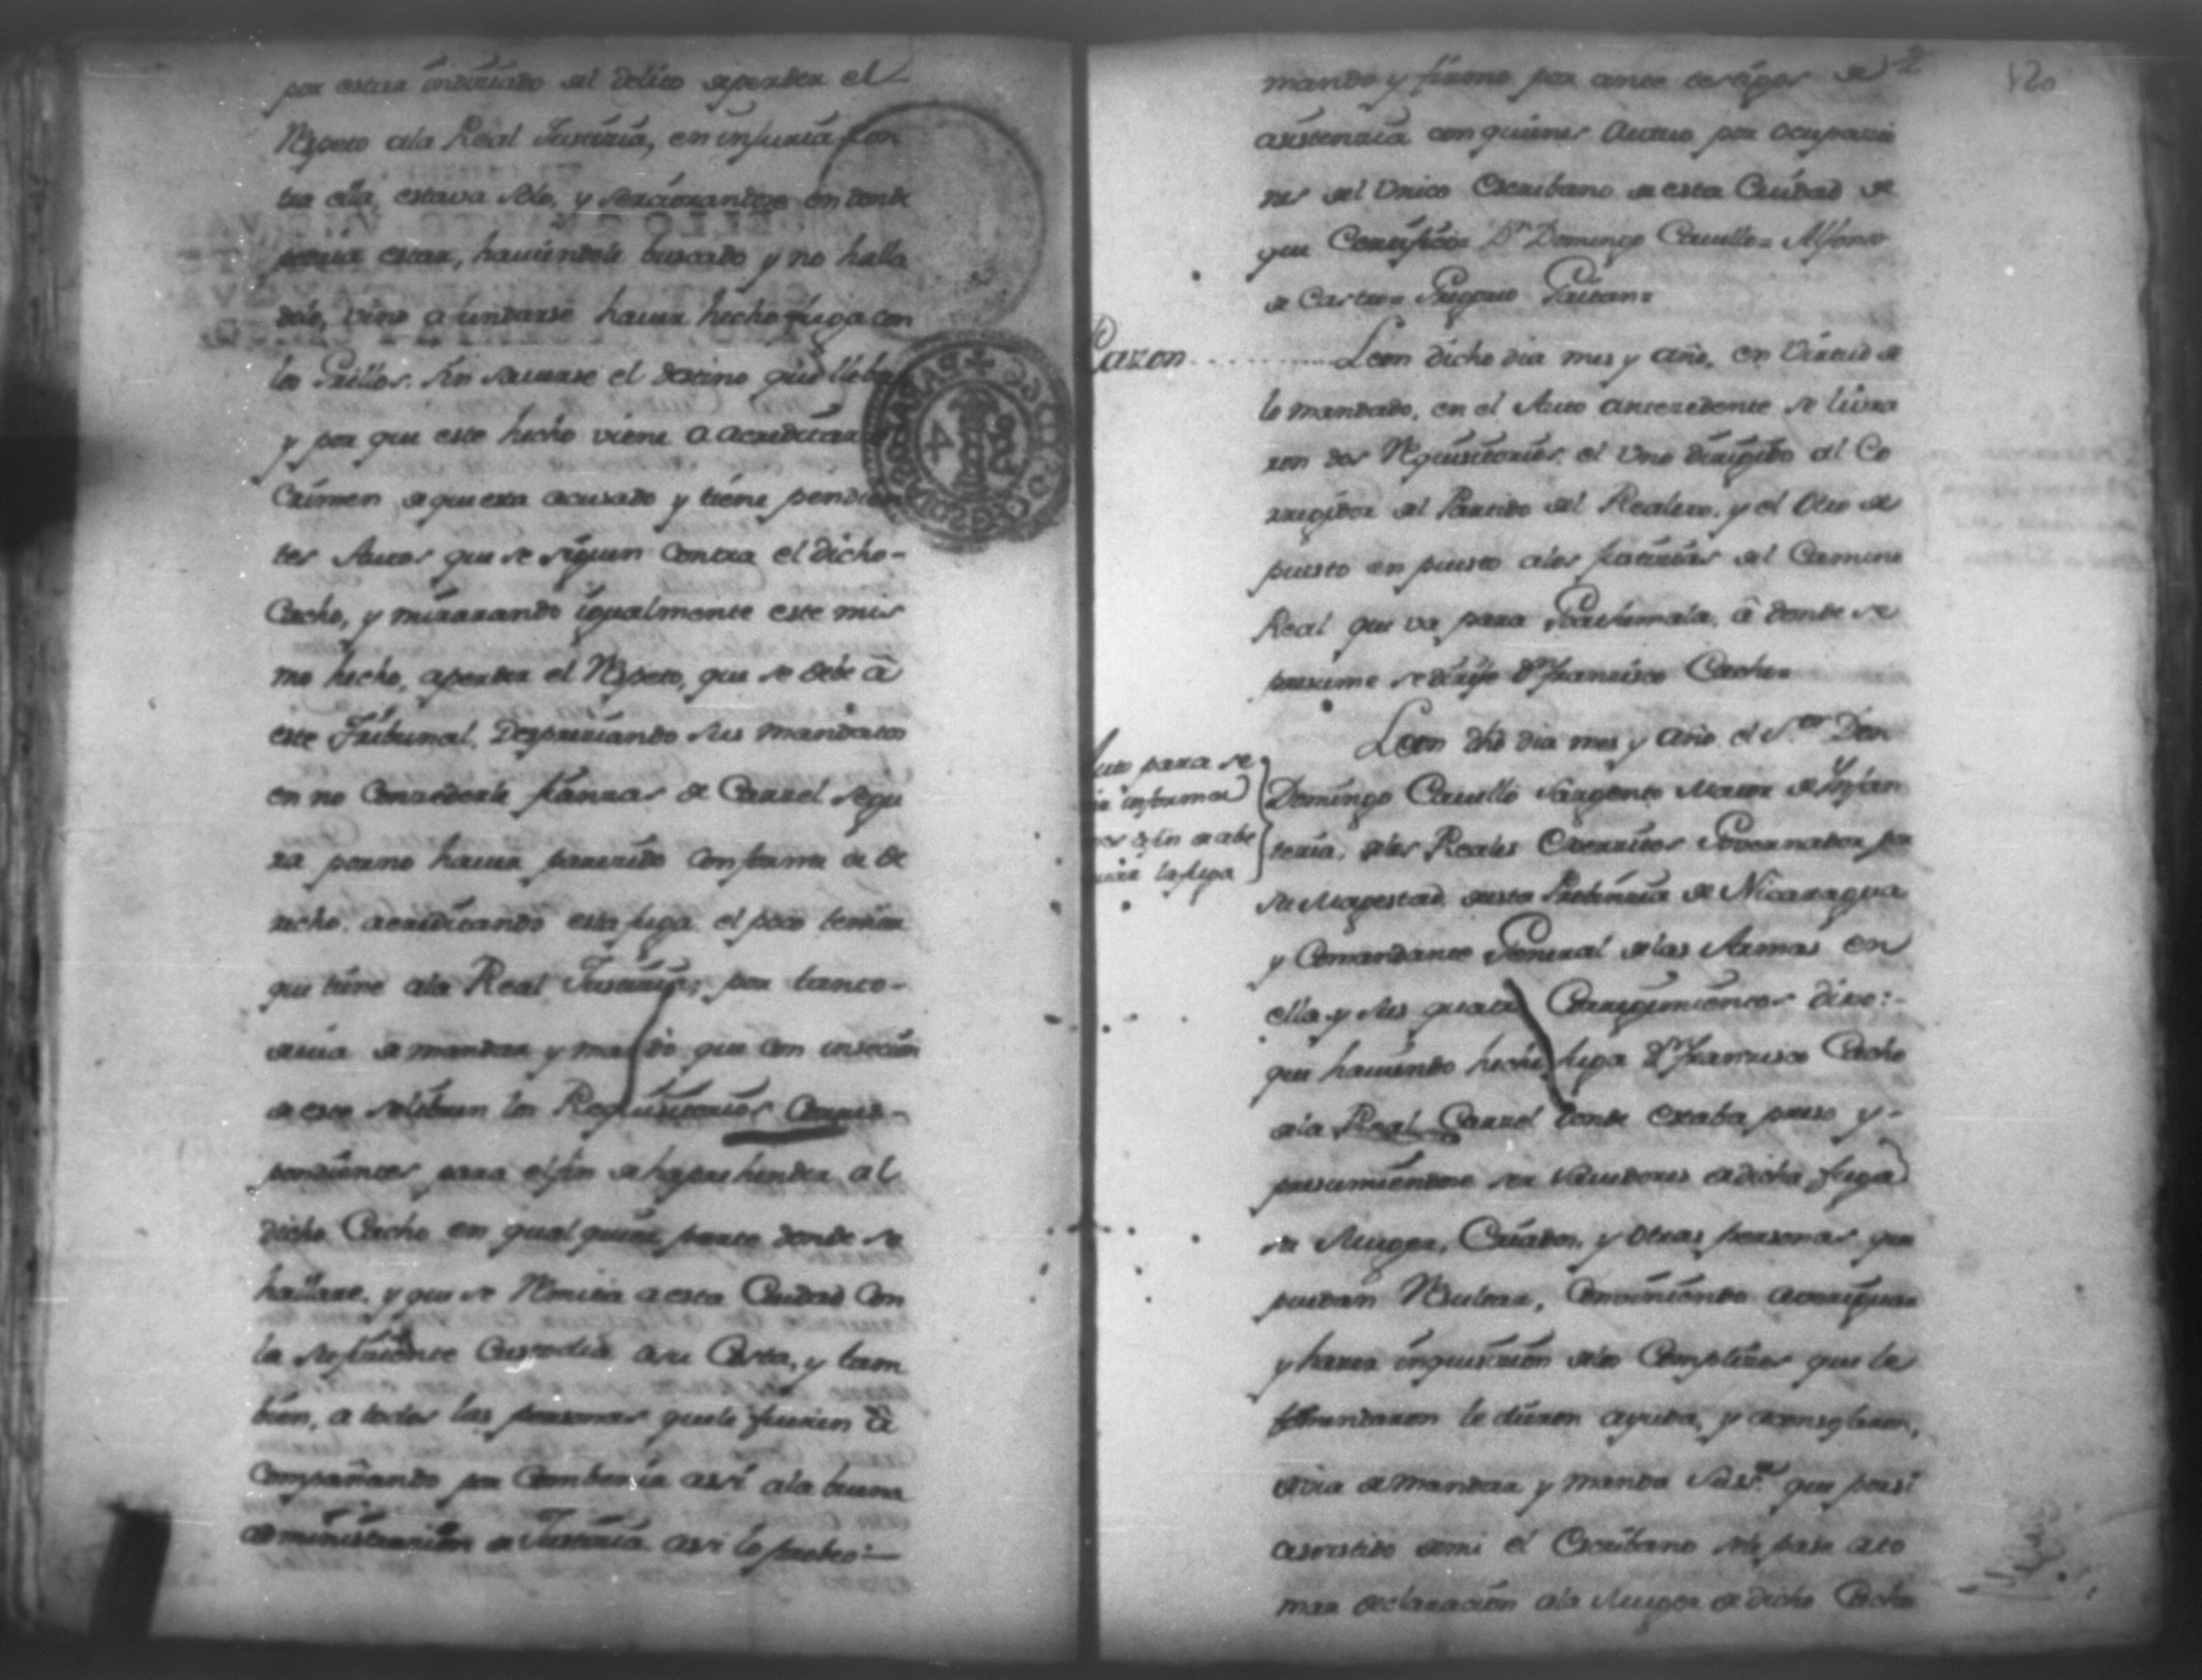 por estar indiciado del delito de perder el
Respeto ala Real Justicia, en injuria con
tra ella, estava solo, y cerciorandose en donde
podria estar, haviendole buscado y no halla
dole, vino a fundarse haver hecho fuga con
los Grillos. sin saverse el destino que lleba
y por que este hecho viene a acreditar el
Crimen de que esta acusado y tiene pendien
tes Autos que se siguen contra el dicho-
Cacho, y mirando igualmente este mis
mo hecho, a perder el Respeto, que se debe â
este Tribunal, Despreciando sus mandatos
en no Concederle fianzas de Carzel segu
ra por no haver parecido conforme a de
recho. acreditando esta fuga el poco temor
que tiene ala Real Justicia; por tanto-
devia de mandar y mando que con insercion
de este se libren los Requisitorios Corres-
pondientes para el fin de haprehender al
dicho Cacho en qualquiera parte donde se
hallare, y que se Remita a esta Ciudad Con
la suficiente Custodia a su Costa, y tam
bien, a todas las personas que le fueren â
Compañando por Combenir assi ala buena
administracion de Justicia assi lo probeo:-
2
120
mando y firmo por ante testigos de
asistencia con quienes Actuo por ocupacio
nes del Unico Escribano de esta Ciudad de
que Certifico= Dn Domingo Cavello= Alfonso
de Castro= Gregorio Gaitan=
Razon .......... Leon dicho dia mes y año, en Virtud de
lo mandado, en el Auto antecedente se libra
ron dos Requisitorios, el Uno dirigido al Co
rregidor del Partido del Realexo, y el Otro de
puesto en puesto alas justicias del Camino
Real que va para Goathemala, â donde se
presume se dirije Dn Francisco Cacho=
Auto para re
informa
cion afin de abe
riguar la fuga
Leon dho dia mes y año el Sor Don
Domingo Cavello Sargento Maior de Ynfan
teria, delos Reales Exercitos Governador por
su Magestad desta Probincia de Nicaragua
y Comandante General delas Armas en
ella y sus quatro Corregimientos dixo:-
que haviendo hecho fuga Dn Francisco Cacho
dela Real Carzel donde estaba preso y-
presumiendose ser savedores de dicha fuga
su Muger, Criados, y otras personas que
puedan Resultar, Combiniendo averiguar
y hacer inquisicion delos Complices que le
fomentaron le dieron ayuda, y aconsejaron,
devia de mandar y manda Su Sria que por sí
asosistido demi el Escribano se pase ato
mar declaracion ala Muger de dicho Cacho